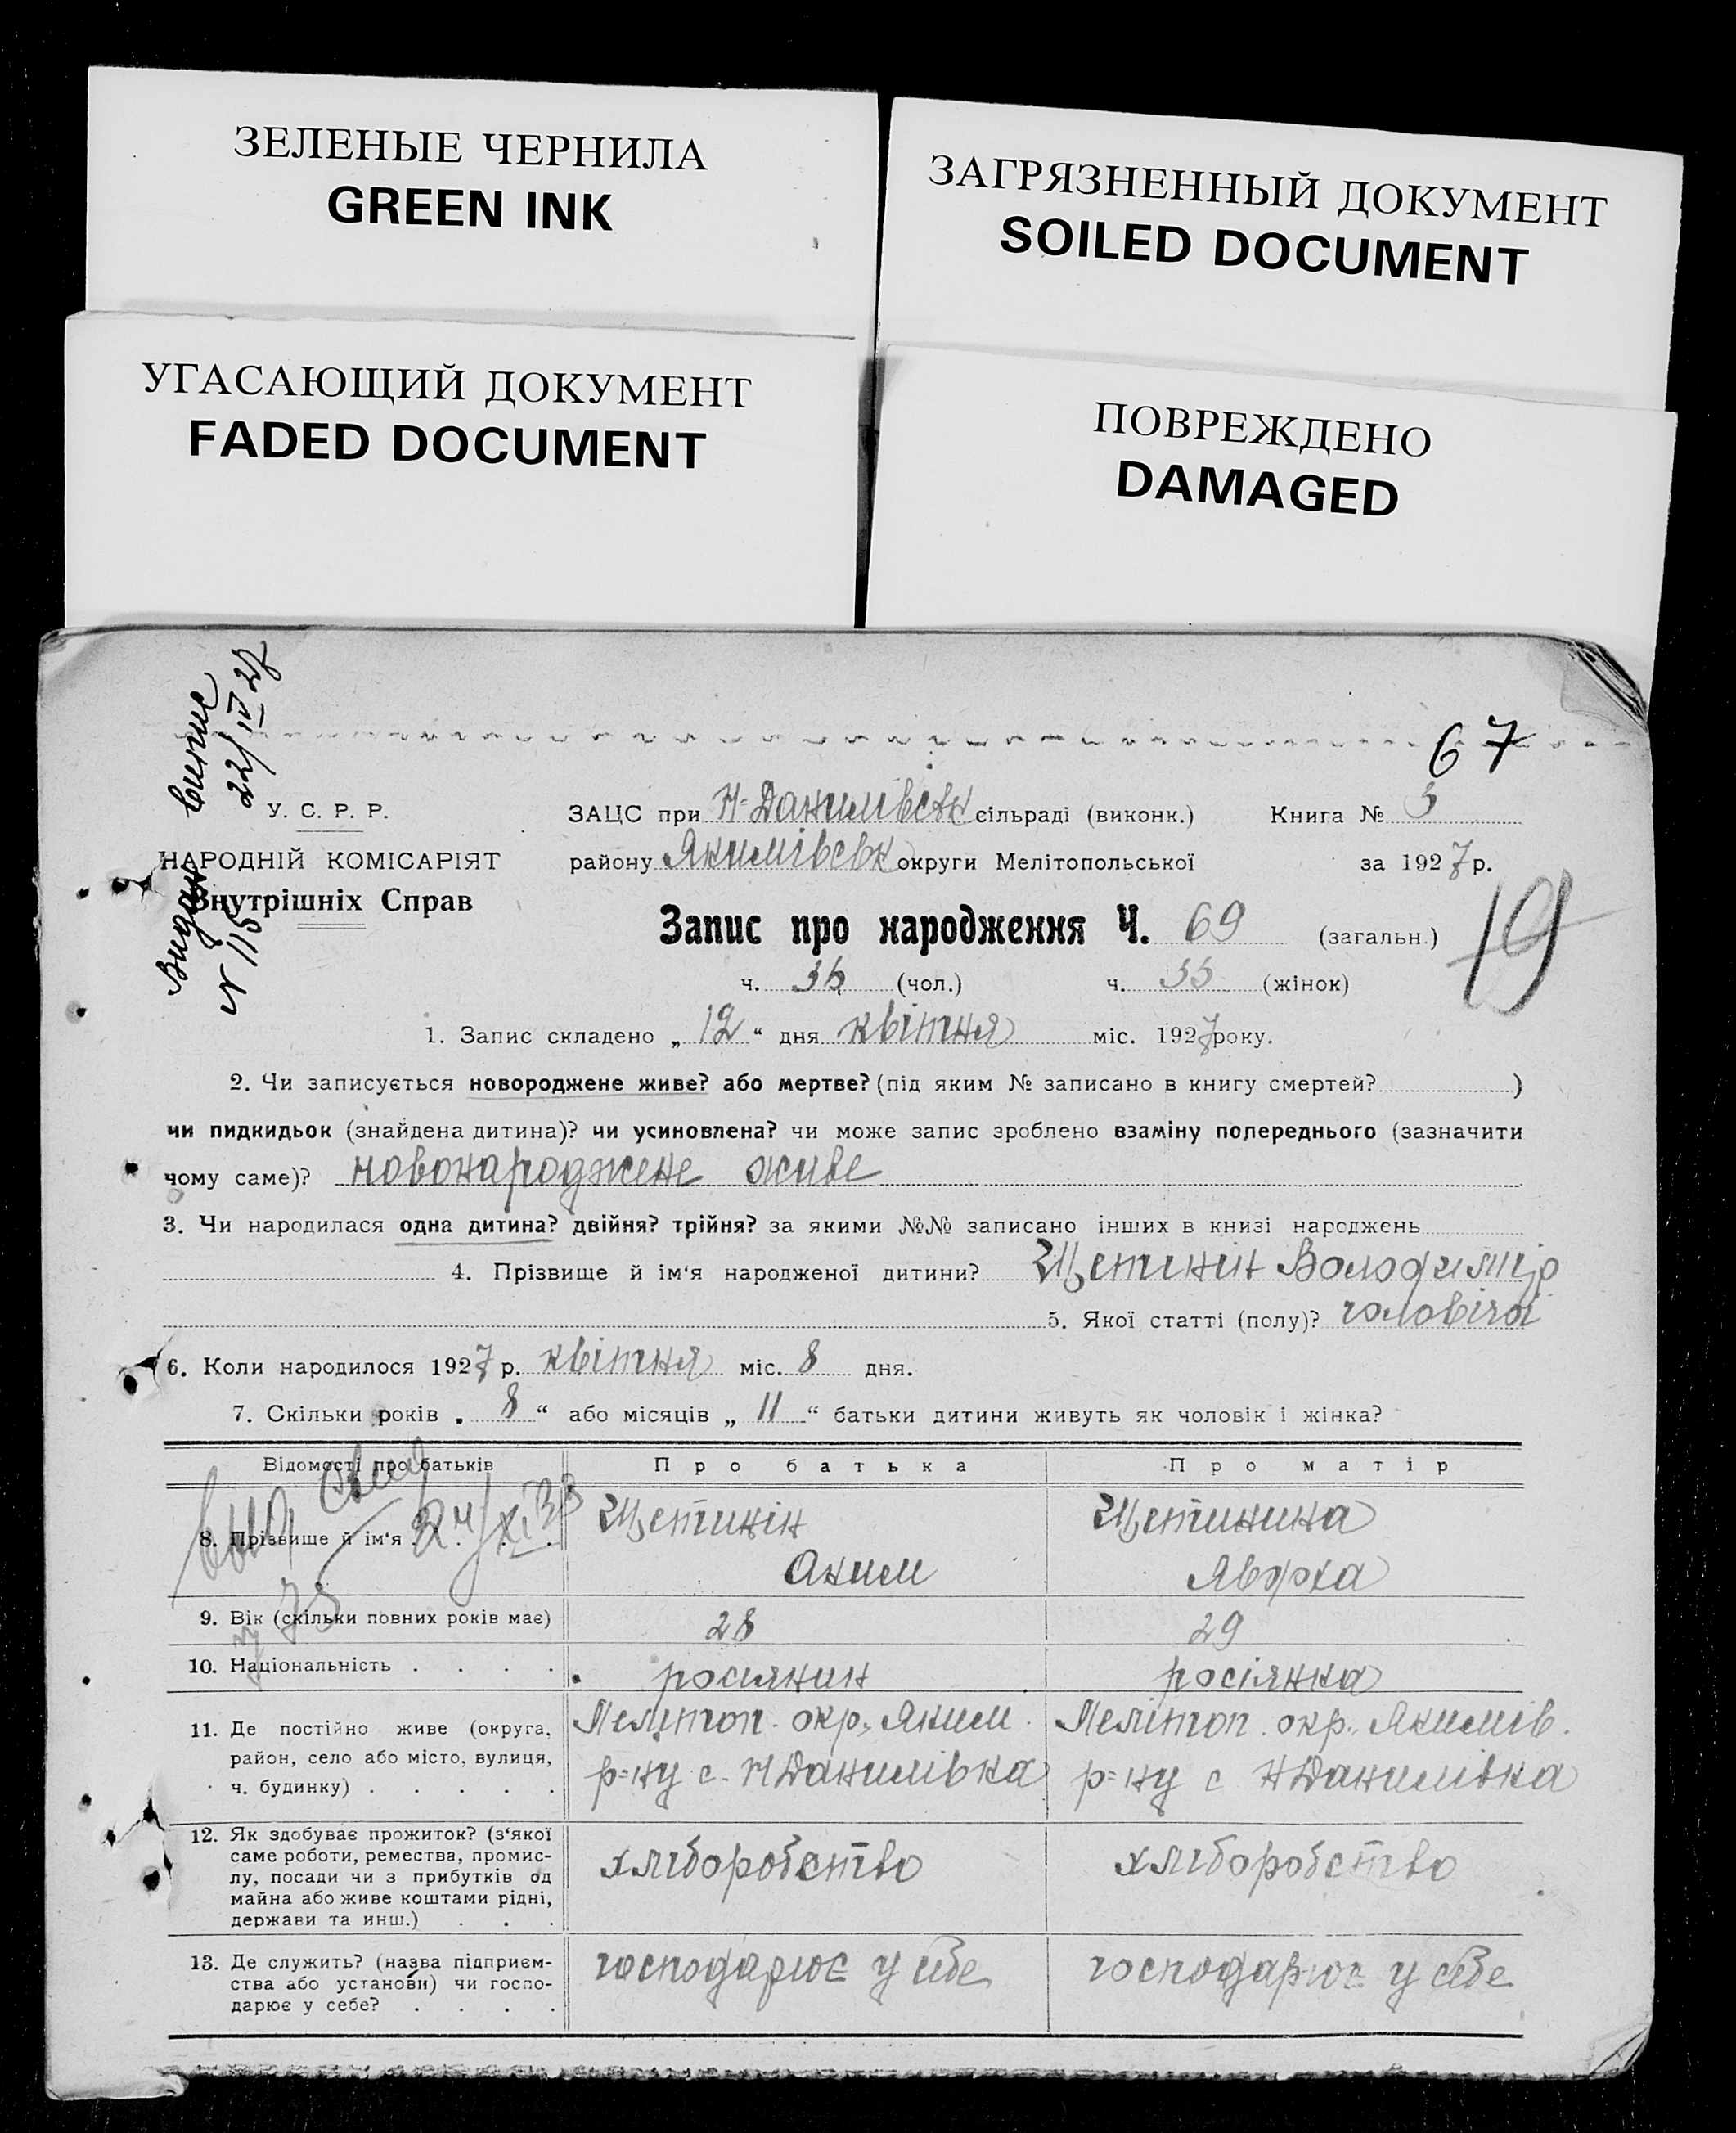 ЗЕЛЕНЫЕ ЧЕРНИЛА
GREEN INK
ЗАГРЯЗНЕННЫЙ ДОКУМЕНТ
SOILED DOCUMENT
УГАСАЮЩИЙ ДОКУМЕНТ
FADED DOCUMENT
ПОВРЕЖДЕНО
DAMAGED
67
Видан Випис
N 115 22/IV 27
У. С. Р. Р.
НАРОДНІЙ КОМІСАРІЯТ
Внутрішніх Справ
ЗАЦС при Н-Данилівськ сільраді (виконк.) Книга №
району Якимівськ округи Мелітопольської за 1927 р.
Запис про народження Ч. 69 (загальн.)
19
ч. (чол.) ч. (жінок)
1. Запис складено „ 12 “ дня квітня міс. 1927 року.
2. Чи записується новороджене живе? або мертве? (під яким № записано в книгу смертей? )
чи пидкидьок (знайдена дитина)? чи усиновлена? чи може запис зроблено взаміну полереднього (зазначити
чому саме)? новонароджене живе
3. Чи народилася одна дитина? двійня? трійня? за якими №№ записано інших в книзі народжень
4. Прізвище й ім‘я народженої дитини? Щетинін Володимір
5. Якої статті (полу)? чоловічої
6. Коли народилося 1927 р. квітня міс. 8 дня.
7. Скільки років „ 8 “ або місяців „ 11 “ батьки дитини живуть як чоловік і жінка?
Відомості про батьків Про батька Про матір
8. Прізвище й ім‘я . . . . Щетинін Щетинина
Аким Явдоха
9. Вік (скільки повних років має) 28 29
10. Національність . . . . росіянин росіянка
11. Де постійно живе (округа, Мелітоп. окр., Яким. Мелітоп. окр., Якимів.
район, село або місто, вулиця, р-ну с. НДанилівка р-ну с НДанилівка
ч. будинку) . . . . .
12. Як здобуває прожиток? (з‘якої
саме роботи, ремества, промис- хліборобство хліборобство
лу, посади чи з прибутків од
майна або живе коштами рідні,
держави та инш.) . . .
13. Де служить? (назва підприєм- господарює у себе господарює у себе
ства або установи) чи госпо-
дарює у себе? . . . .